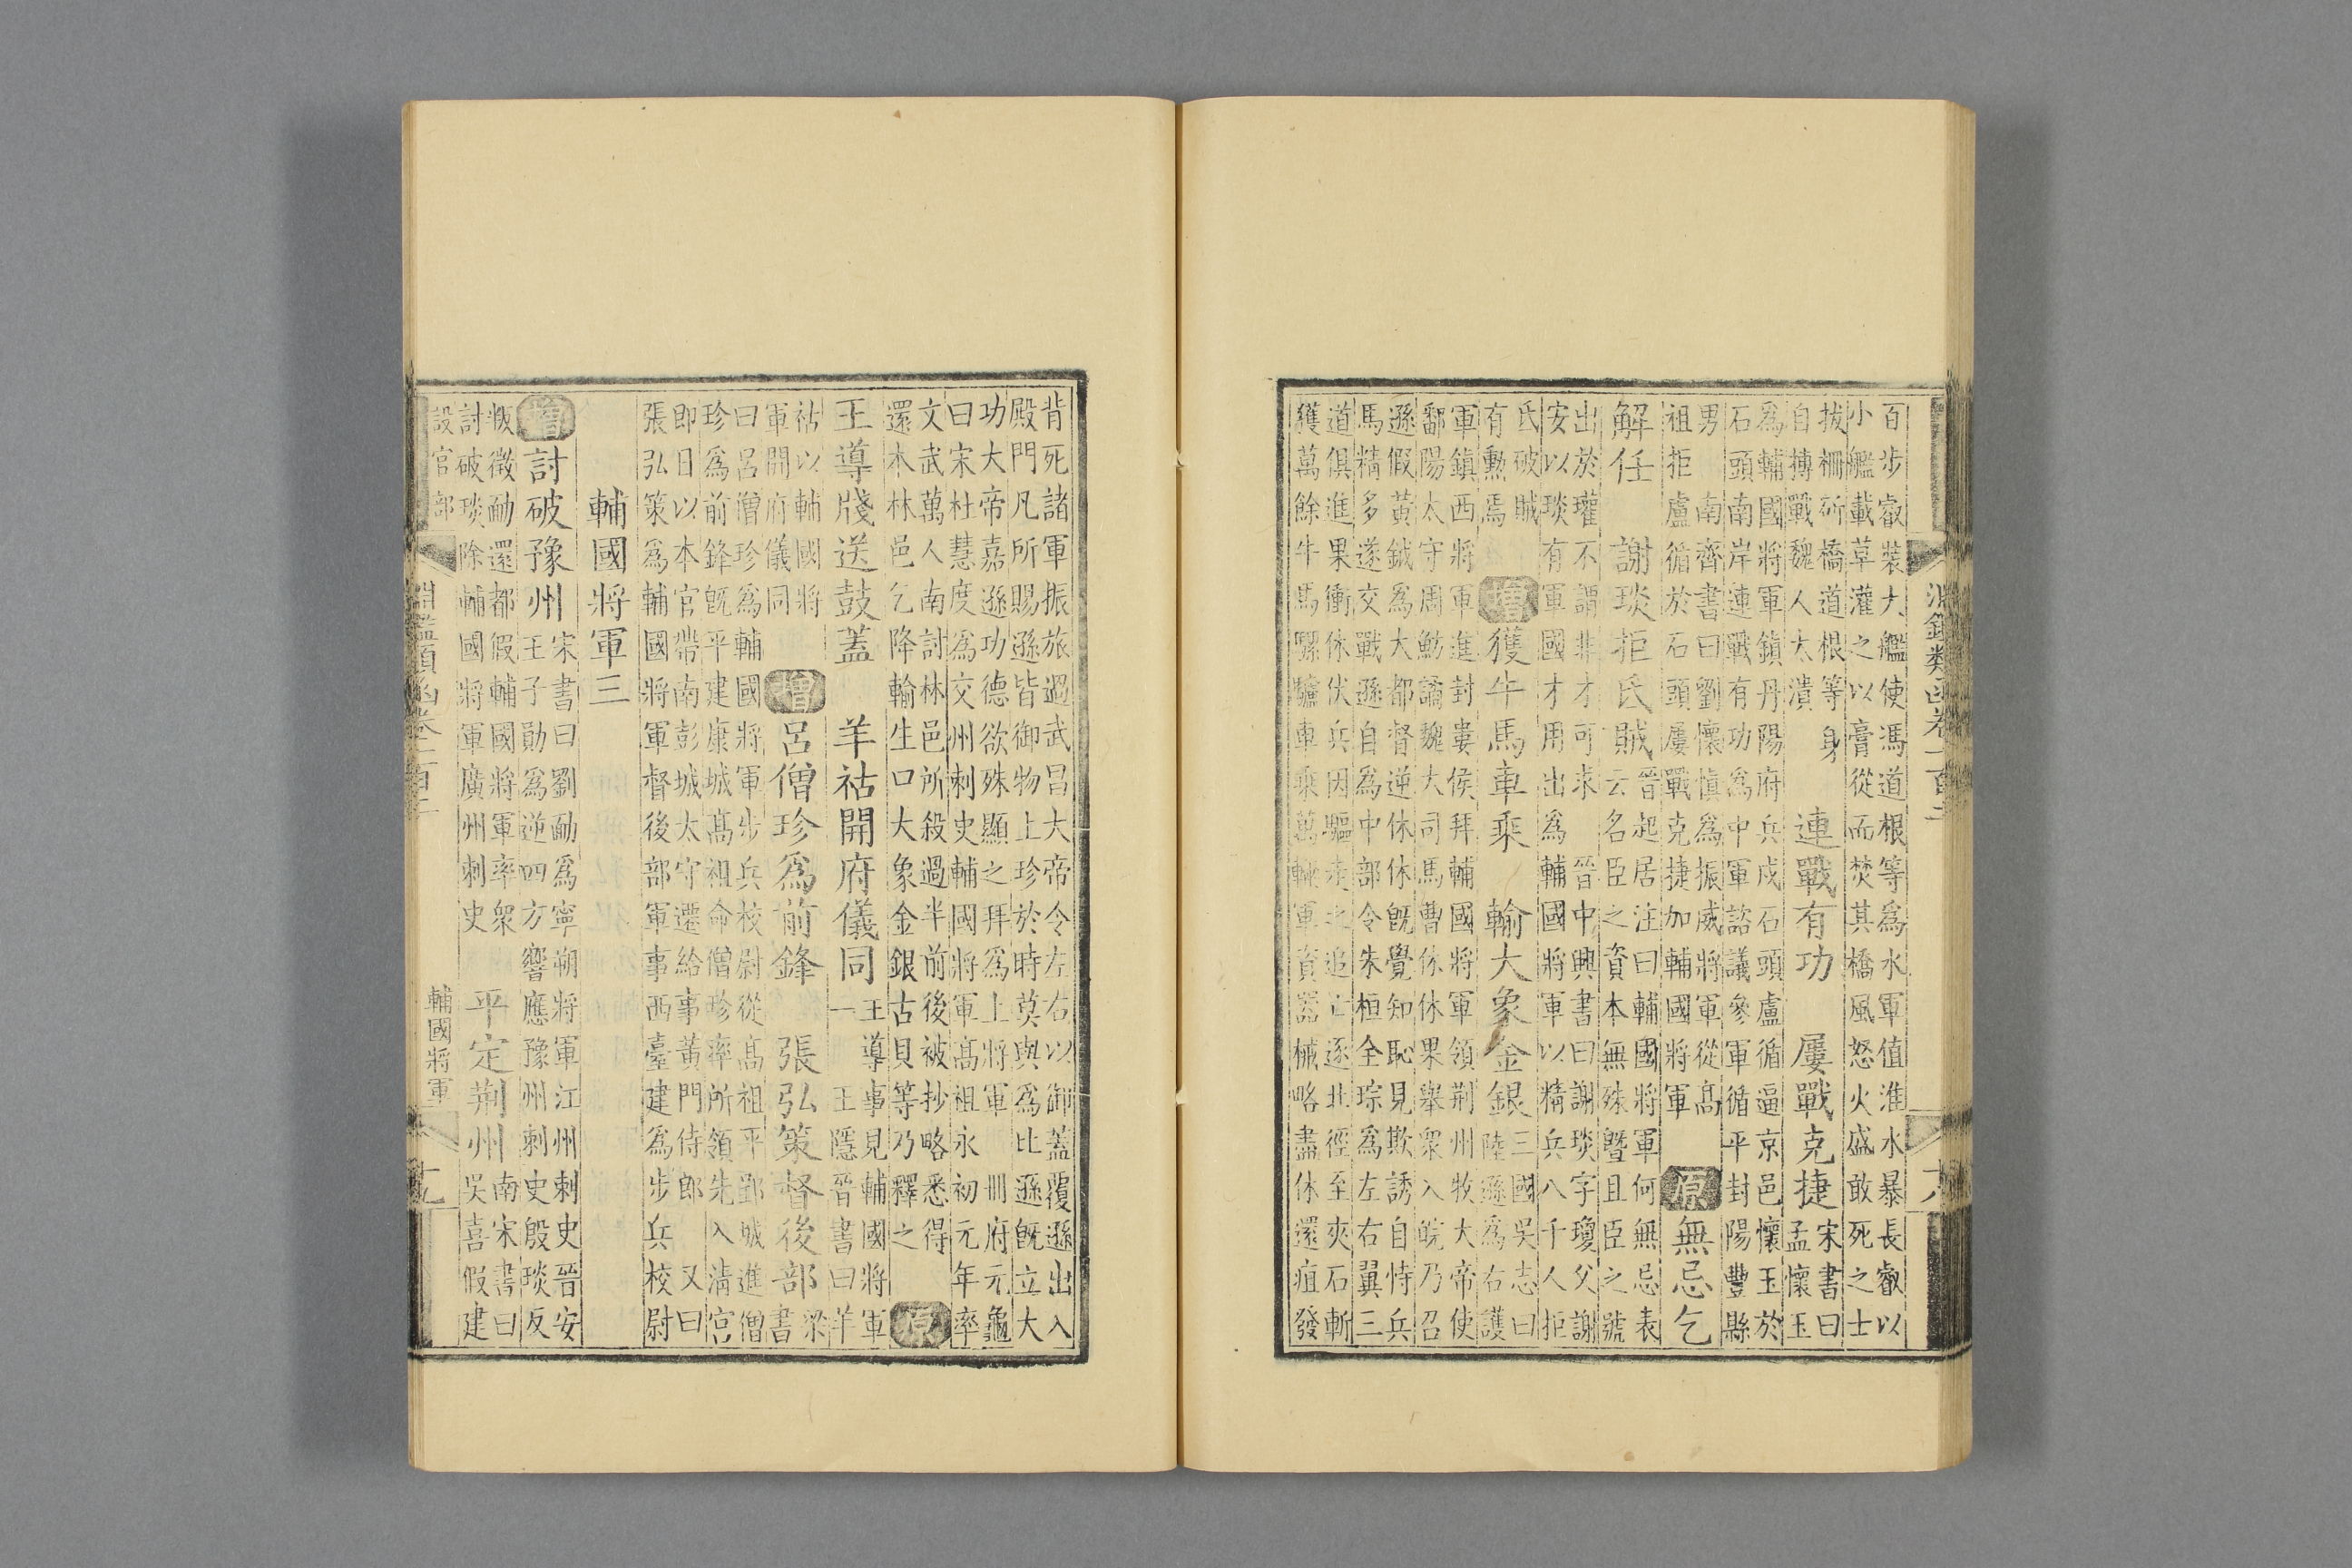 百步叡裝大艦使馮道根等爲水軍值淮水暴長叡以
小艦載草灌之以膏從而焚其橋風怒火盛敢死之士
拔柵斫橋道根等身
自搏戰魏人大潰
連戰有功
屢戰克捷
宋書曰
孟懷玉
爲輔國將軍鎮丹陽府兵戍石頭盧循逼京邑懷玉於
石頭南岸連戰有功爲中軍諮議參軍循平封陽豐縣
男南齊書曰劉懷慎爲振威將軍從髙
祖拒盧循於石頭屢戰克捷加輔國將軍
原
無忌乞
解任
謝琰拒氏賊
晉起居注曰輔國將軍何無忌表
云名臣之資本無殊曁且臣之號
出於瓘不謂非才可求
安以琰有軍國才用出爲輔國將軍以精兵八千人拒
晉中興書曰謝琰字瓊父謝
氏破賊
有勲焉
增
獲牛馬車乘
輸大象金銀
三國吳志曰
陸遜爲右護
軍鎮西將軍進封婁侯拜輔國將軍領荆州牧大帝使
鄱陽太守周魴譎魏大司馬曹休休果舉衆入皖乃召
遜假黃鉞爲大都督逆休休旣覺知恥見欺誘自恃兵
馬精多遂交戰遜自爲中部令朱桓全琮爲左右翼三
道俱進果衝休伏兵因驅走之追亡逐北徑至夾石斬
獲萬餘牛馬騾驢車乘萬輛軍資器械略盡休還疽發
淵鑑類函卷一百十
背死諸軍振旅過武昌大帝令左右以御蓋覆遜出入
殿門凡所賜遜皆御物上珍於時莫與爲比遜旣立大
功大帝嘉遜功德欲殊顯之拜爲上將軍 冊府元龜
曰宋杜慧度爲交州刺史輔國將軍髙祖永初元年率
文武萬人南討林邑所殺過半前後被抄略悉得
還本林邑乞降輸生口大象金銀古貝等乃釋之
原
王導牋送鼓蓋
羊祜開府儀同
王導事見輔國將軍
一 王隱晉書曰羊
祜以輔國將
軍開府儀同
增
呂僧珍爲前鋒
張弘策督後部
梁
書
曰呂僧珍爲輔國將軍步兵校尉從髙祖平郢城進僧
珍爲前鋒旣平建康城髙祖命僧珍率所領先入淸宮
即日以本官帶南彭城太守遷給事黃門侍郎 又曰
張弘策爲輔國將軍督後部軍事西臺建爲步兵校尉
輔國將軍三
增
討破豫州
宋書曰劉勔爲寧朔將軍江州刺史晉安
王子勛爲逆四方響應豫州刺史殷琰反
叛徵勔還都假輔國將軍率衆
討破琰除輔國將軍廣州刺史
平定荆州
南宋書曰
吳喜假建
設官部
淵鑑類函卷一百十
輔國將軍
十九